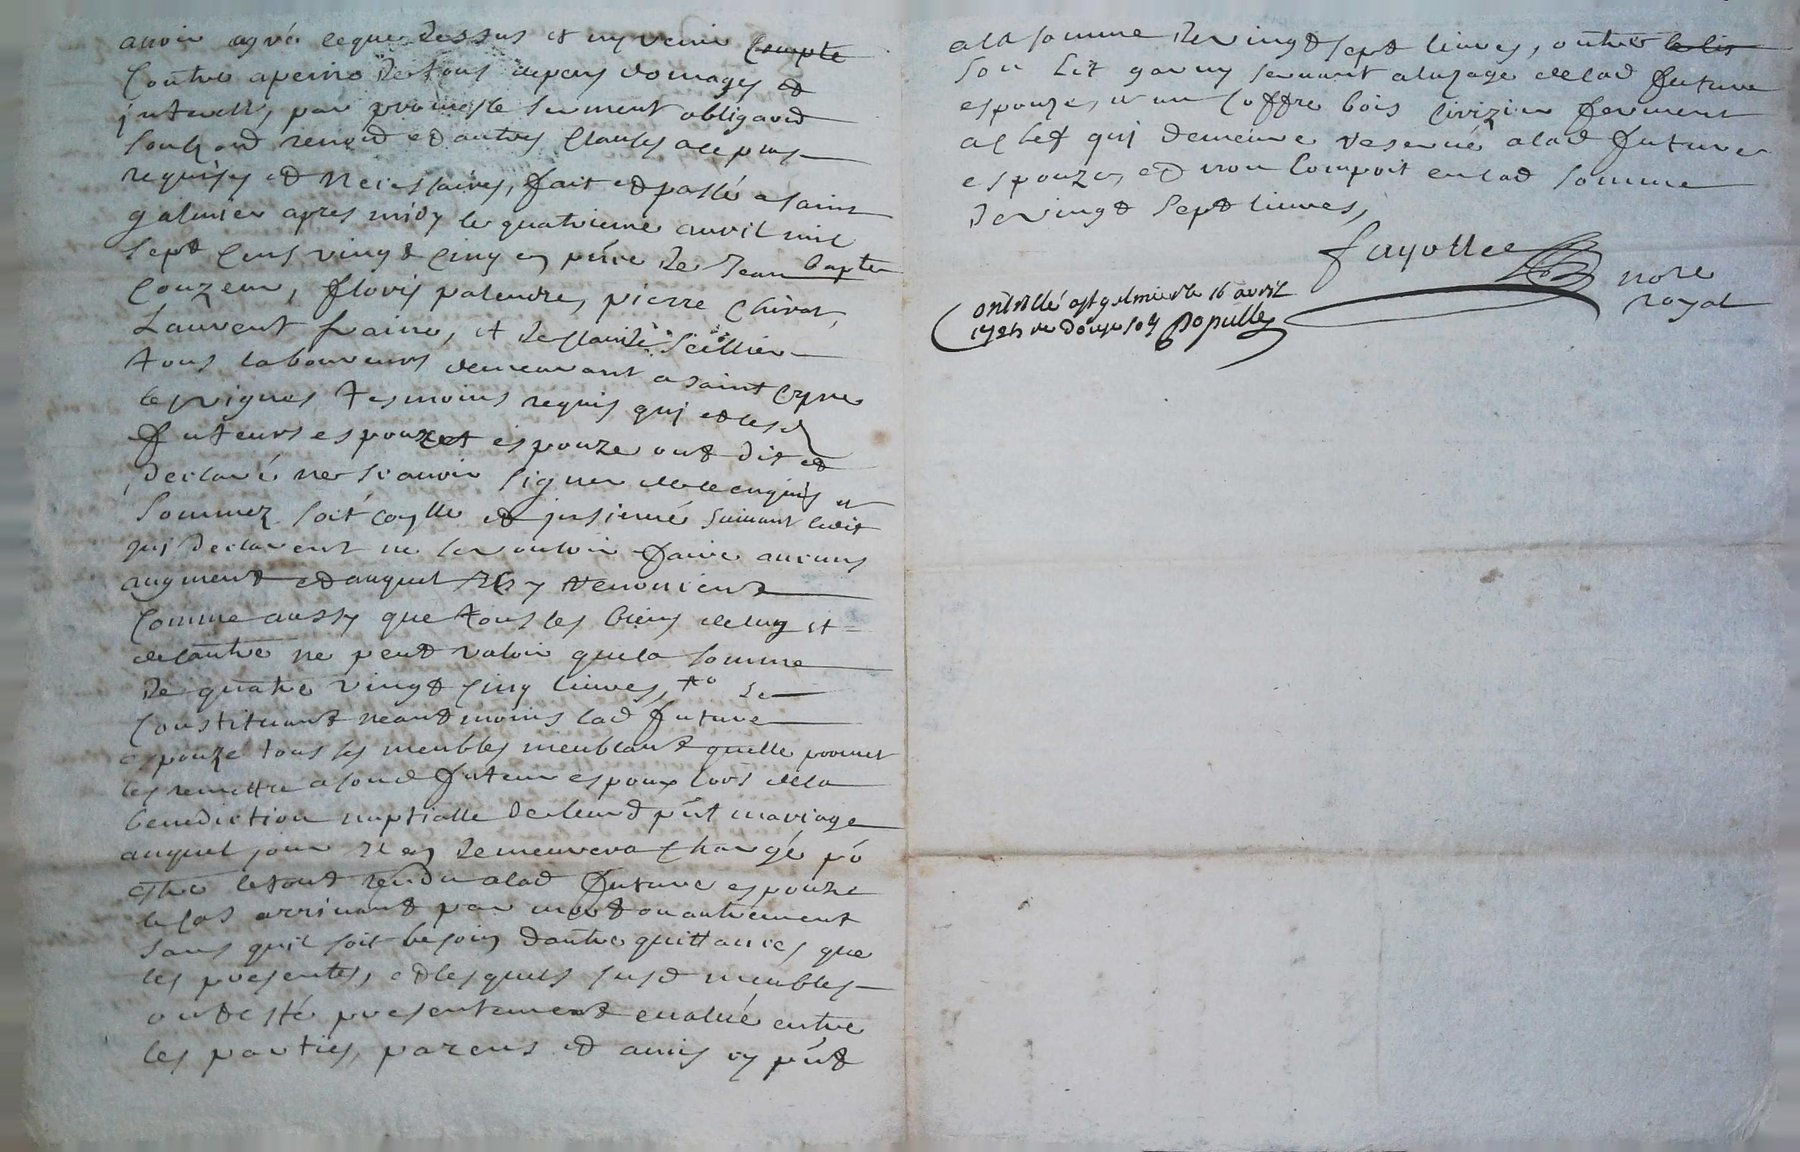 avoir agréé ceque dessus et ny venir compte
contre apeine de tous depens domages et
jnterests, par promesse serment obligaōn
renoīd et autres clauses a ce plus
requises et necessaires, fait et passé a saint
galmier apres midy le quatrieme avril mil
sept cens vingt cinq en pn̄ce de Jean bapte
couzeur, floris palendre, pierre chirat,
Laurent fraine, et de
tous laboureurs demeurant a saint cyre
les vignes tesmoins requis qui et lesd
futeurs espouzet espouze ont dit et
declaré ne scavoir signer de ce enquis et
sommez soit coṇlle et jnsinué suivant ledit
qui declarent ne le vouloir faire aucuns
augment et auquel
comme aussy que tous les biens deluy et
delautre ne peut valoir que la somme
de quatre vingt cinq livres, se
constituant neantmoins lad future
espouze tous ses meubles meublant quelle promet
les remettre a sond futeur espoux lors dela
benediction nuptialle de leurd pn̄t mariage
auquel jour il en demeurera chargé po
estre le tout rendu alad future espouze
le cas arrivant par mort ou autrement
sans quil soit besoin dautre quittances que
les presentes, et lesquels susd meubles
ont esté presentement evalué entre
les parties, parens et amis cy pn̄t
ala somme de vingt sept livres, outre le lit
son lit garny servant a luzage delad future
espouze, et un coffre bois cerizier fermant
a clef qui demeure reservé alad future
espouze, et non compoit en lad somme
de vingt sept livres,
fayolle
nore
royal
Contrllé a st galmier le 16 avril
1725 re douze sols Populle